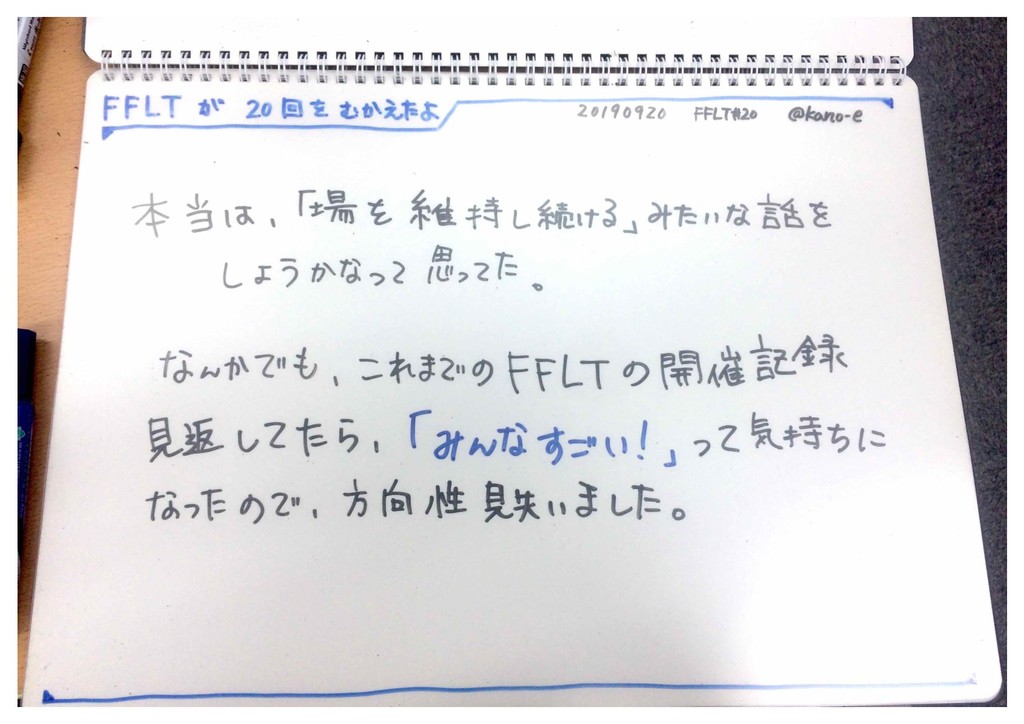 FFLTが 20回をむかえたよ 20190920 FFLT#20 @kano-e
本当は、「場を維持し続ける」みたいな話を
しようかなって思ってた。
なんかでも、これまでのFFLTの開催記録
見返してたら、「みんなすごい!」って気持ちに
なったので、方向性見失いました。